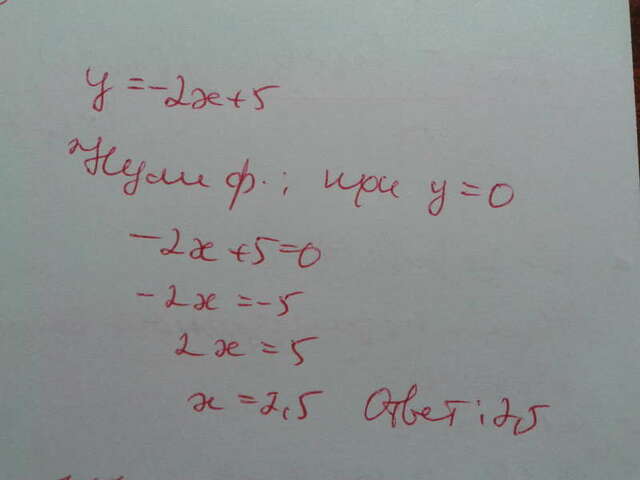 y = -2x+5
Нули ф.; при y=0
-2x+5=0
-2x=-5
2x=5
x=2,5 Ответ: 2,5